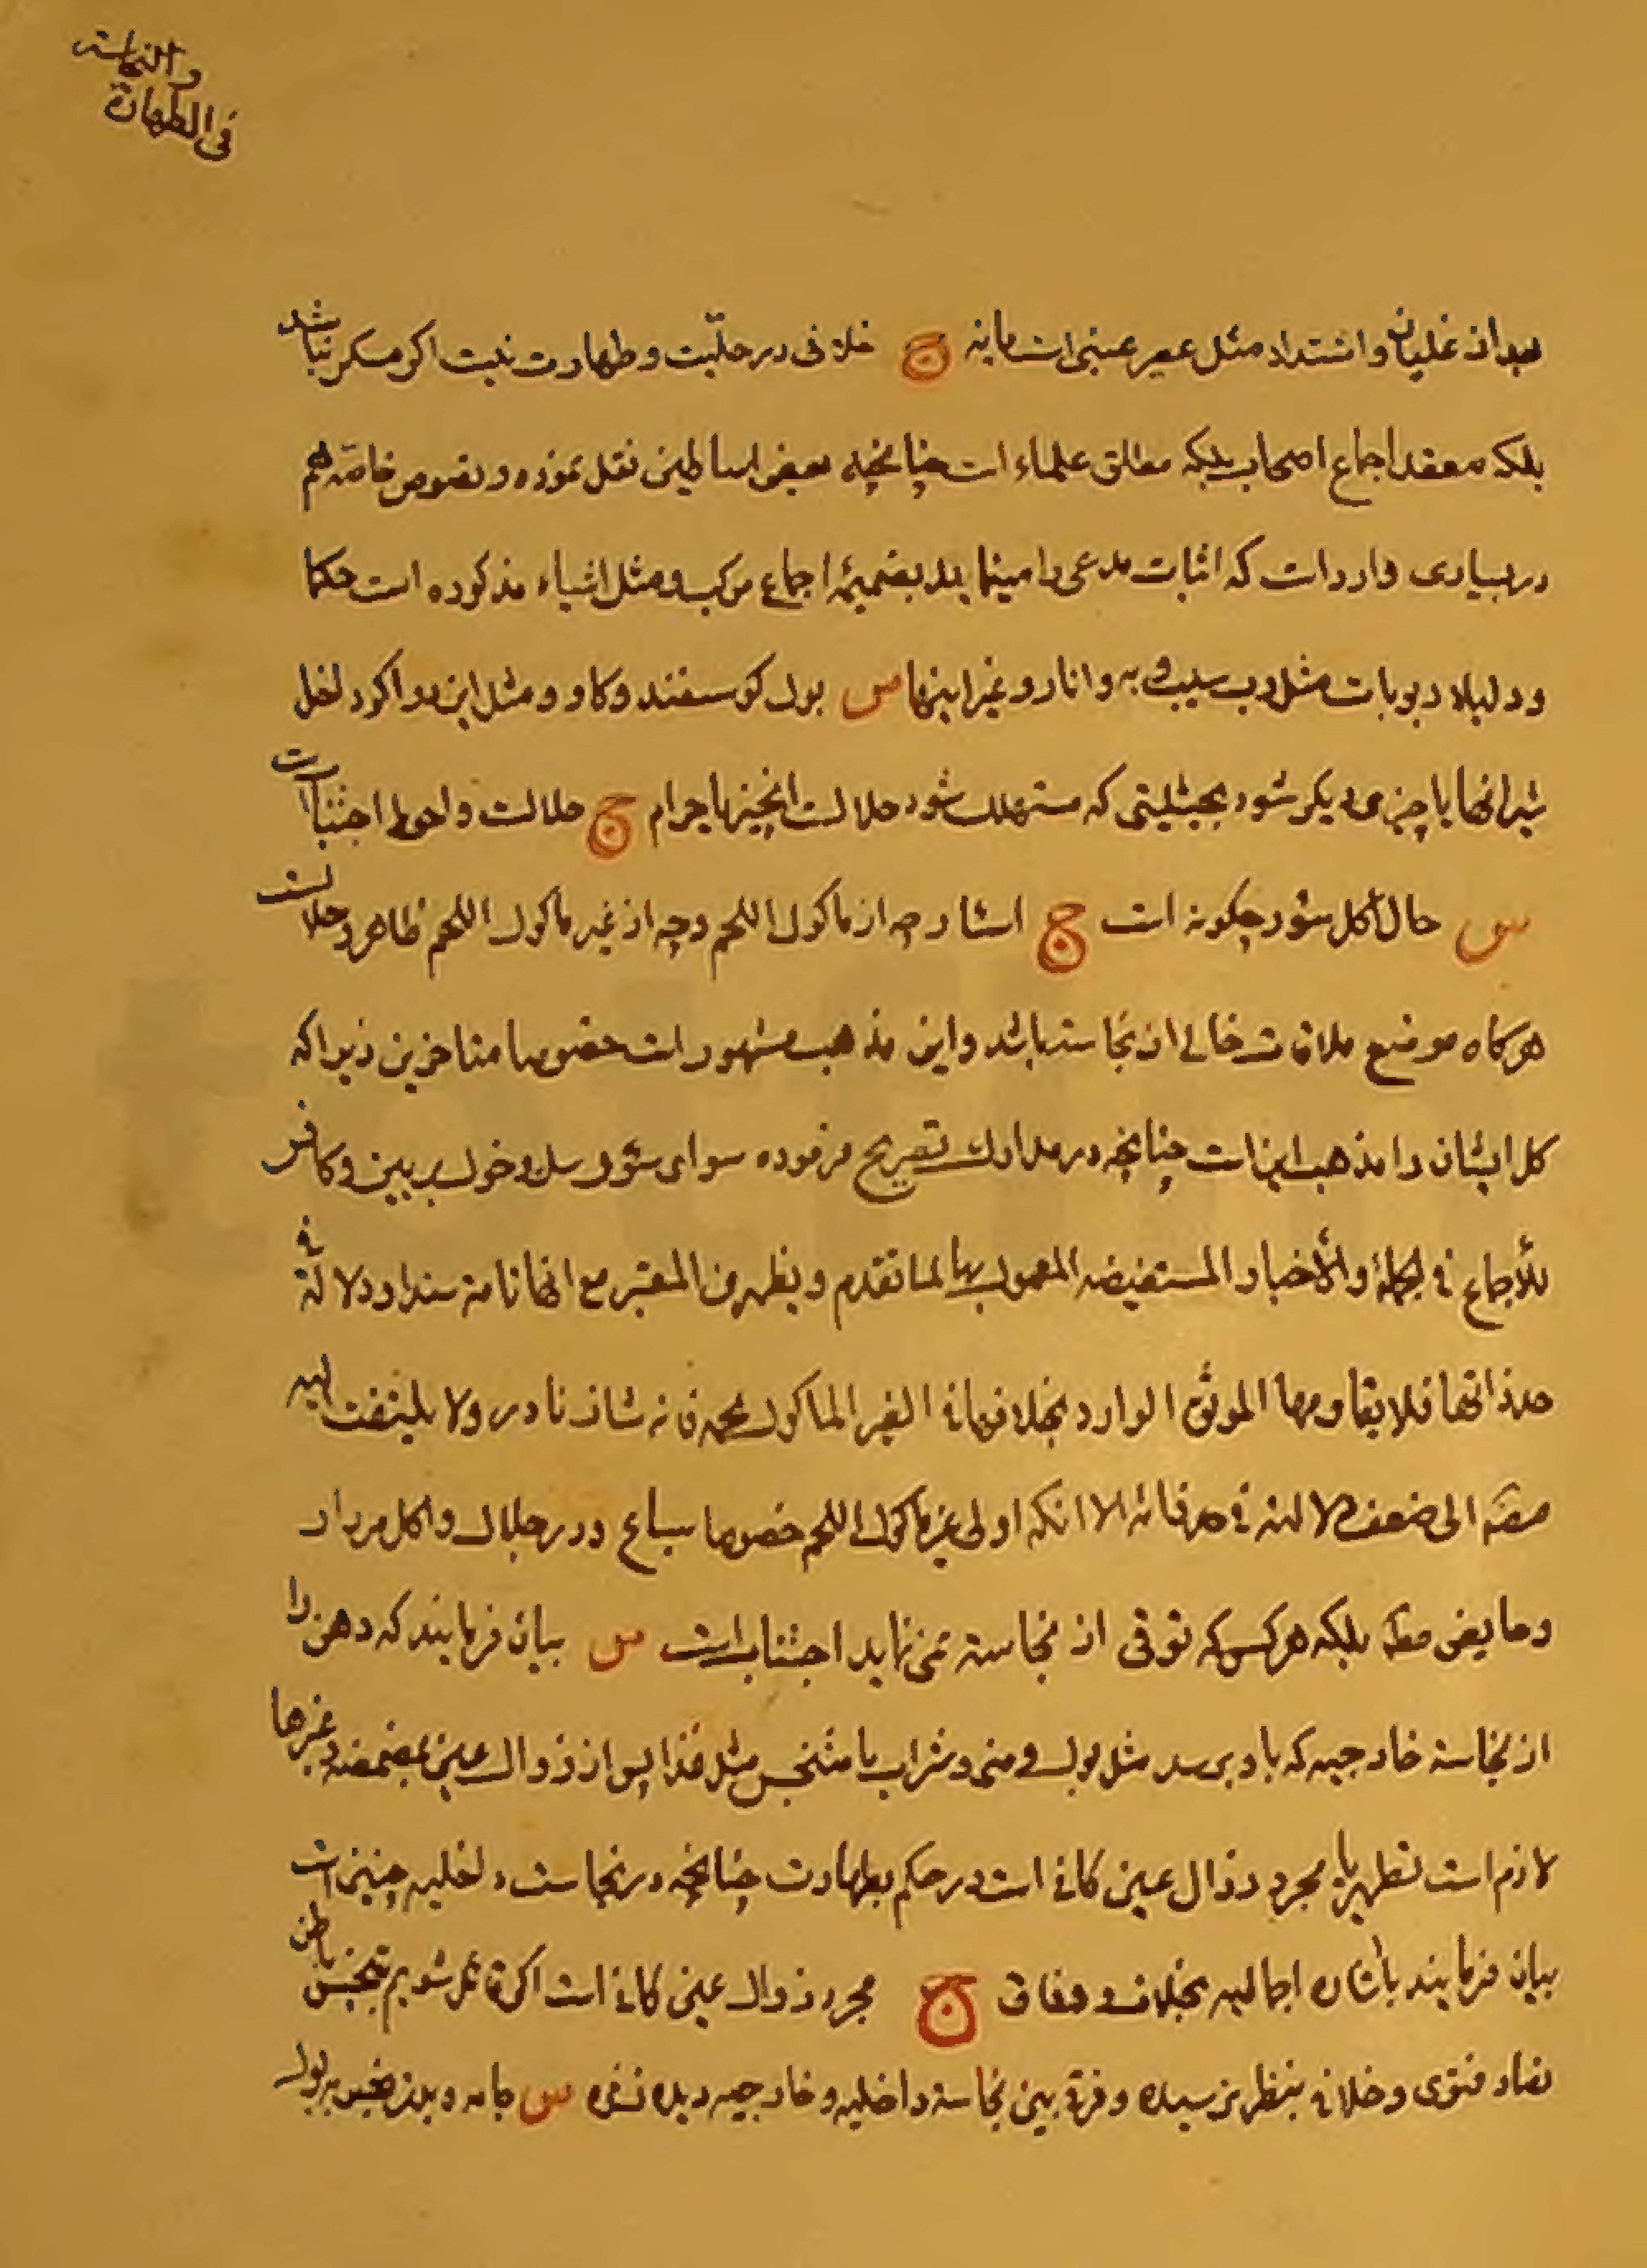 فی الطهارة
والنجاسة
بعد از غلیان و اشتداد مثل عصیر عنبی است یا نه ج خلافی در حلّیت و طهارت نیست اکر مسکر نباشد
بلکه معقد اجماع اصحاب بلکه مطلق علماء است چنانچه بعض اساطین نقل نموده و نصوص خاصّه هم
در بسیاری وارد است که اثبات مدعی را مینماید بضمیمهٔ اجماع مرکب و مثل اشیاء مذکوره است حکما
ربوبات مثل رب سیب و به و انار و غیر اینها س بول کوسفند و کاو و مثل این دو اکر داخل
شیر انها یا چیزی دیکر شود بحیثیتی که مستهلک شود حلال است انچیز یا حرام ج حلالست و احوط اجتناب است
س حال اکل سؤر چکونه است ج اسئار چه از ماکول اللحم و چه از غیر ماکول اللحم طاهر و حلالست
هرکاه موضع ملاقات خالی از نجاست باشد و این مذهب مشهور است خصوصا متاخرین زیرا که
کل ایشان را مذهب اینست چنانچه در مدارک تصریح فرموده سوای سؤر سک و خوک بریین و کافر
للأجماع فی الجملة والأخبار المستفیضه المعمول بها لما تقدم و یظهر من المعتبر مع انها تامة سندا و دلالة فی
حد ذاتها فلا یقاومها الموثق الوارد بخلافها فی الغیر الماکول لحمه فانه شاذ نادر و لا یلتفت الیه
الی ضعف دلالته فی حد ذاته الا انکه اولی غیر ماکول اللحم خصوصا سباع و در جلال و اکل مردار
و حایض بلکه هرکس که توقی از نجاسة نمی نماید اجتنابست س بیان فرمایند که دهن را
از نجاسة خارجیه که باو برسد مثل بول و منی و شراب یا متنجس مثل غذا پس از زوال عین بمضمضه و غیرها
لازم است تطهیر یا مجرد زوال عین کافی است در حکم بطهارت چنانچه در نجاست داخلیه چنین است
بیان فرمایند باشاره اجمالیه بخلاف و وفاق ج مجرد زوال عین کافی است اکر قائل شویم بتنجس باطن
فتوی و خلافی بنظر نرسیده و فرق بین نجاسة داخلیه و خارجیه دیده نشده س جامه و بدن نجس ببول